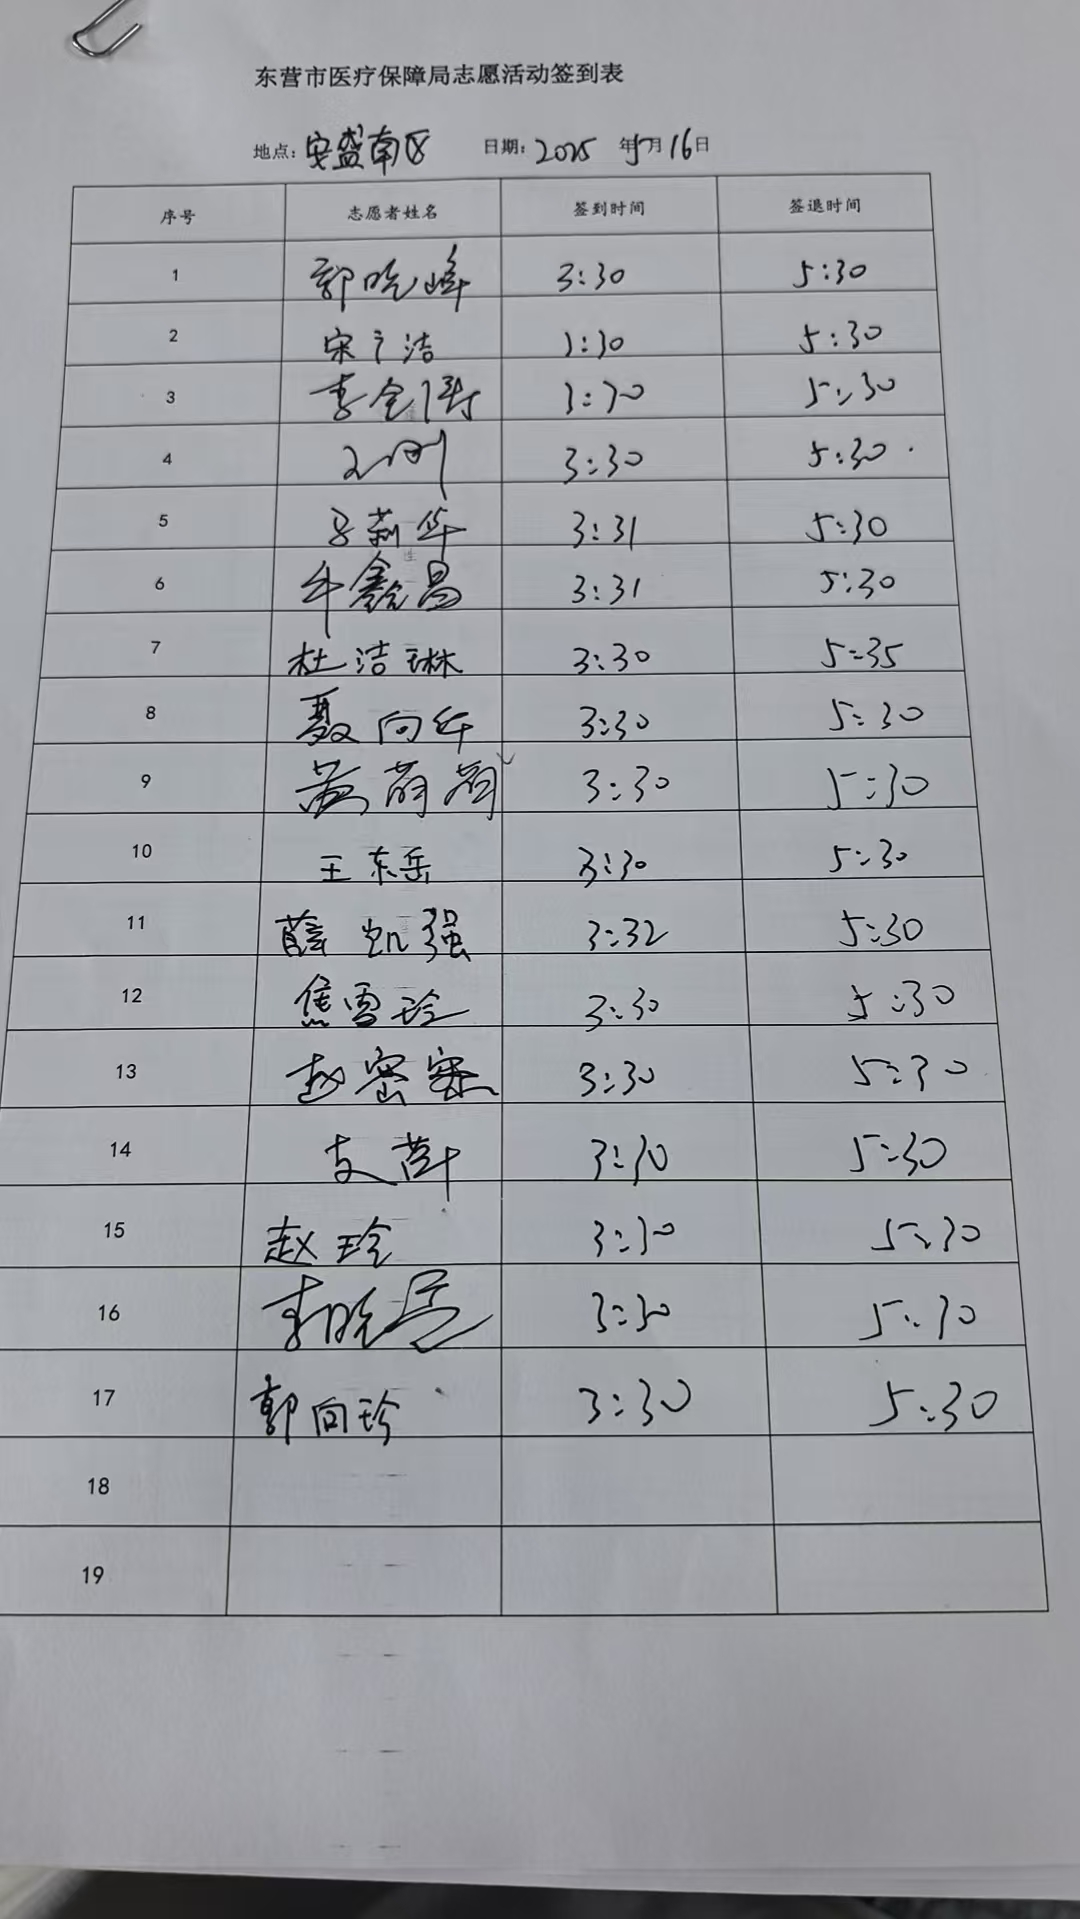 东营市医疗保障局志愿活动签到表
地点：安盛南区 日期：2025 年5月16日
序号 志愿者姓名 签到时间 签退时间
1 郭晓峰 3:30 5:30
2 宋广洁 3:30 5:30
3 李金涛 3:30 5:30
4 3:30 5:30
5 马莉华 3:31 5:30
6 牛鑫昌 3:31 5:30
7 杜洁琳 3:30 5:35
8 聂向午 3:30 5:30
9 3:30 5:30
10 王东岳 3:30 5:30
11 薛凯强 3:32 5:30
12 焦雪玲 3:30 5:30
13 赵密密 3:30 5:30
14 支萍 3:30 5:30
15 赵玲 3:30 5:30
16 李晓 3:30 5:30
17 郭向珍 3:30 5:30
18
19